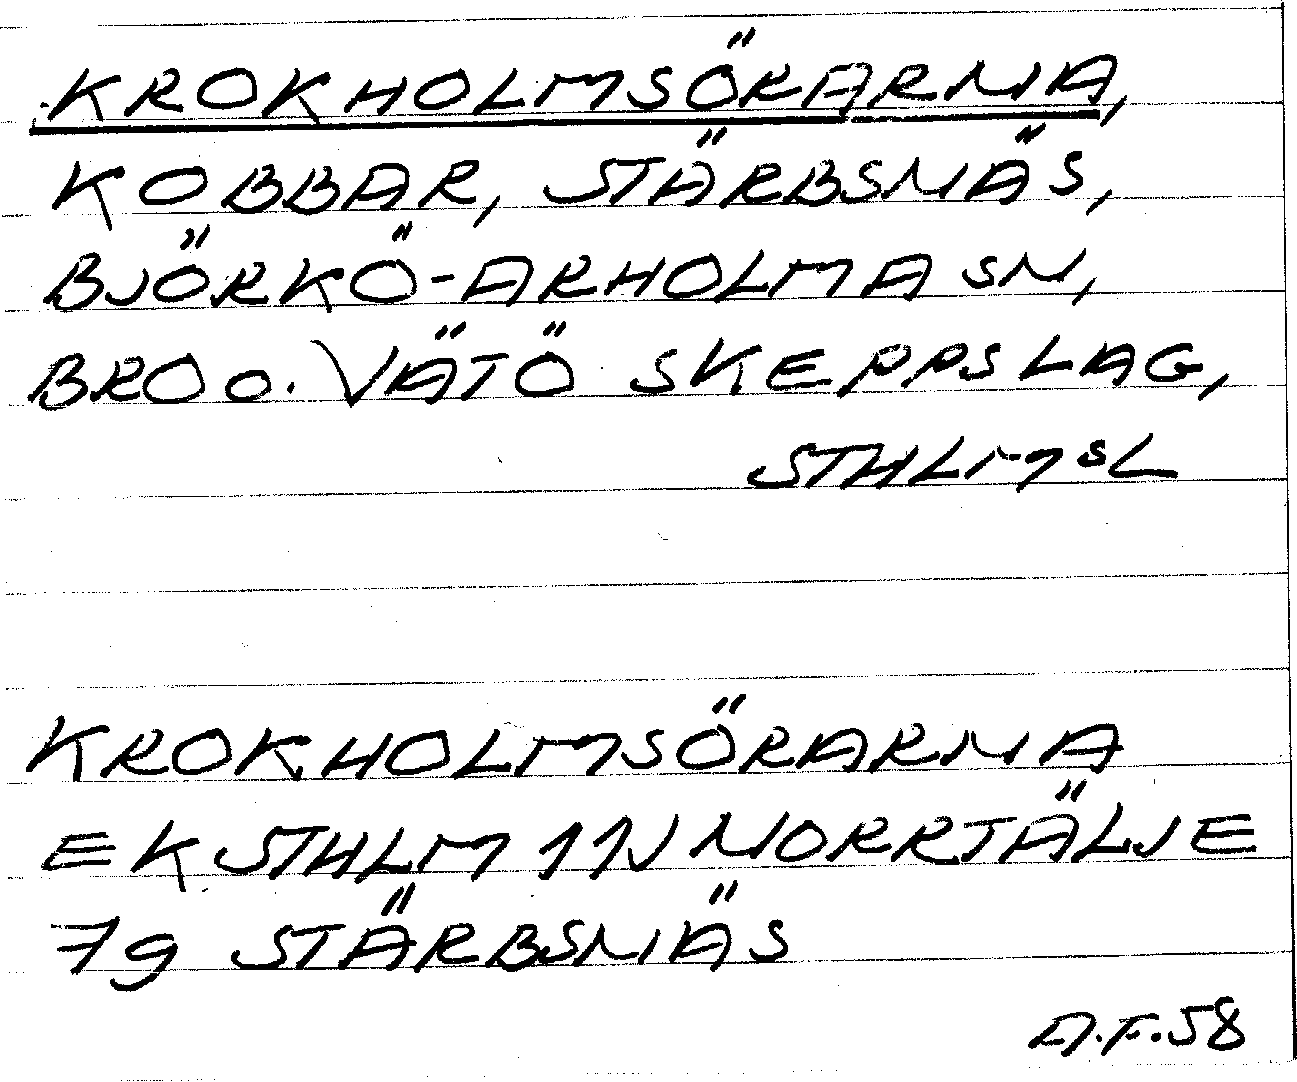 KROKHOLMSÖRARNA,
KOBBAR, STÄRBSNÄS,
BJÖRKÖ-ARHOLMA SN,
BRO O. VÄTÖ SKEPPSLAG,
STHLMSL
KROKHOLMSÖRARNA
EK STHLM 11J NORRTÄLJE
7g STÄRBSNÄS
A.F.58